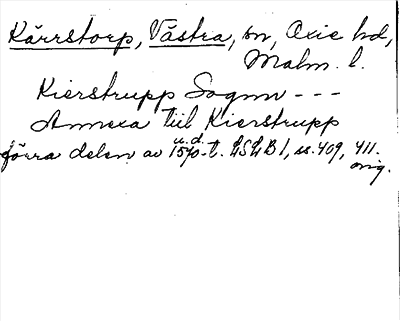 Kärrstorp, Västra, sn, Oxie hd,
Malm. l.
Kierstrupp Sognn - - -
Annexa till Kierstrupp
förra delen av 1570-t. u.d. LSLB 1, ss. 409, 411.
orig.